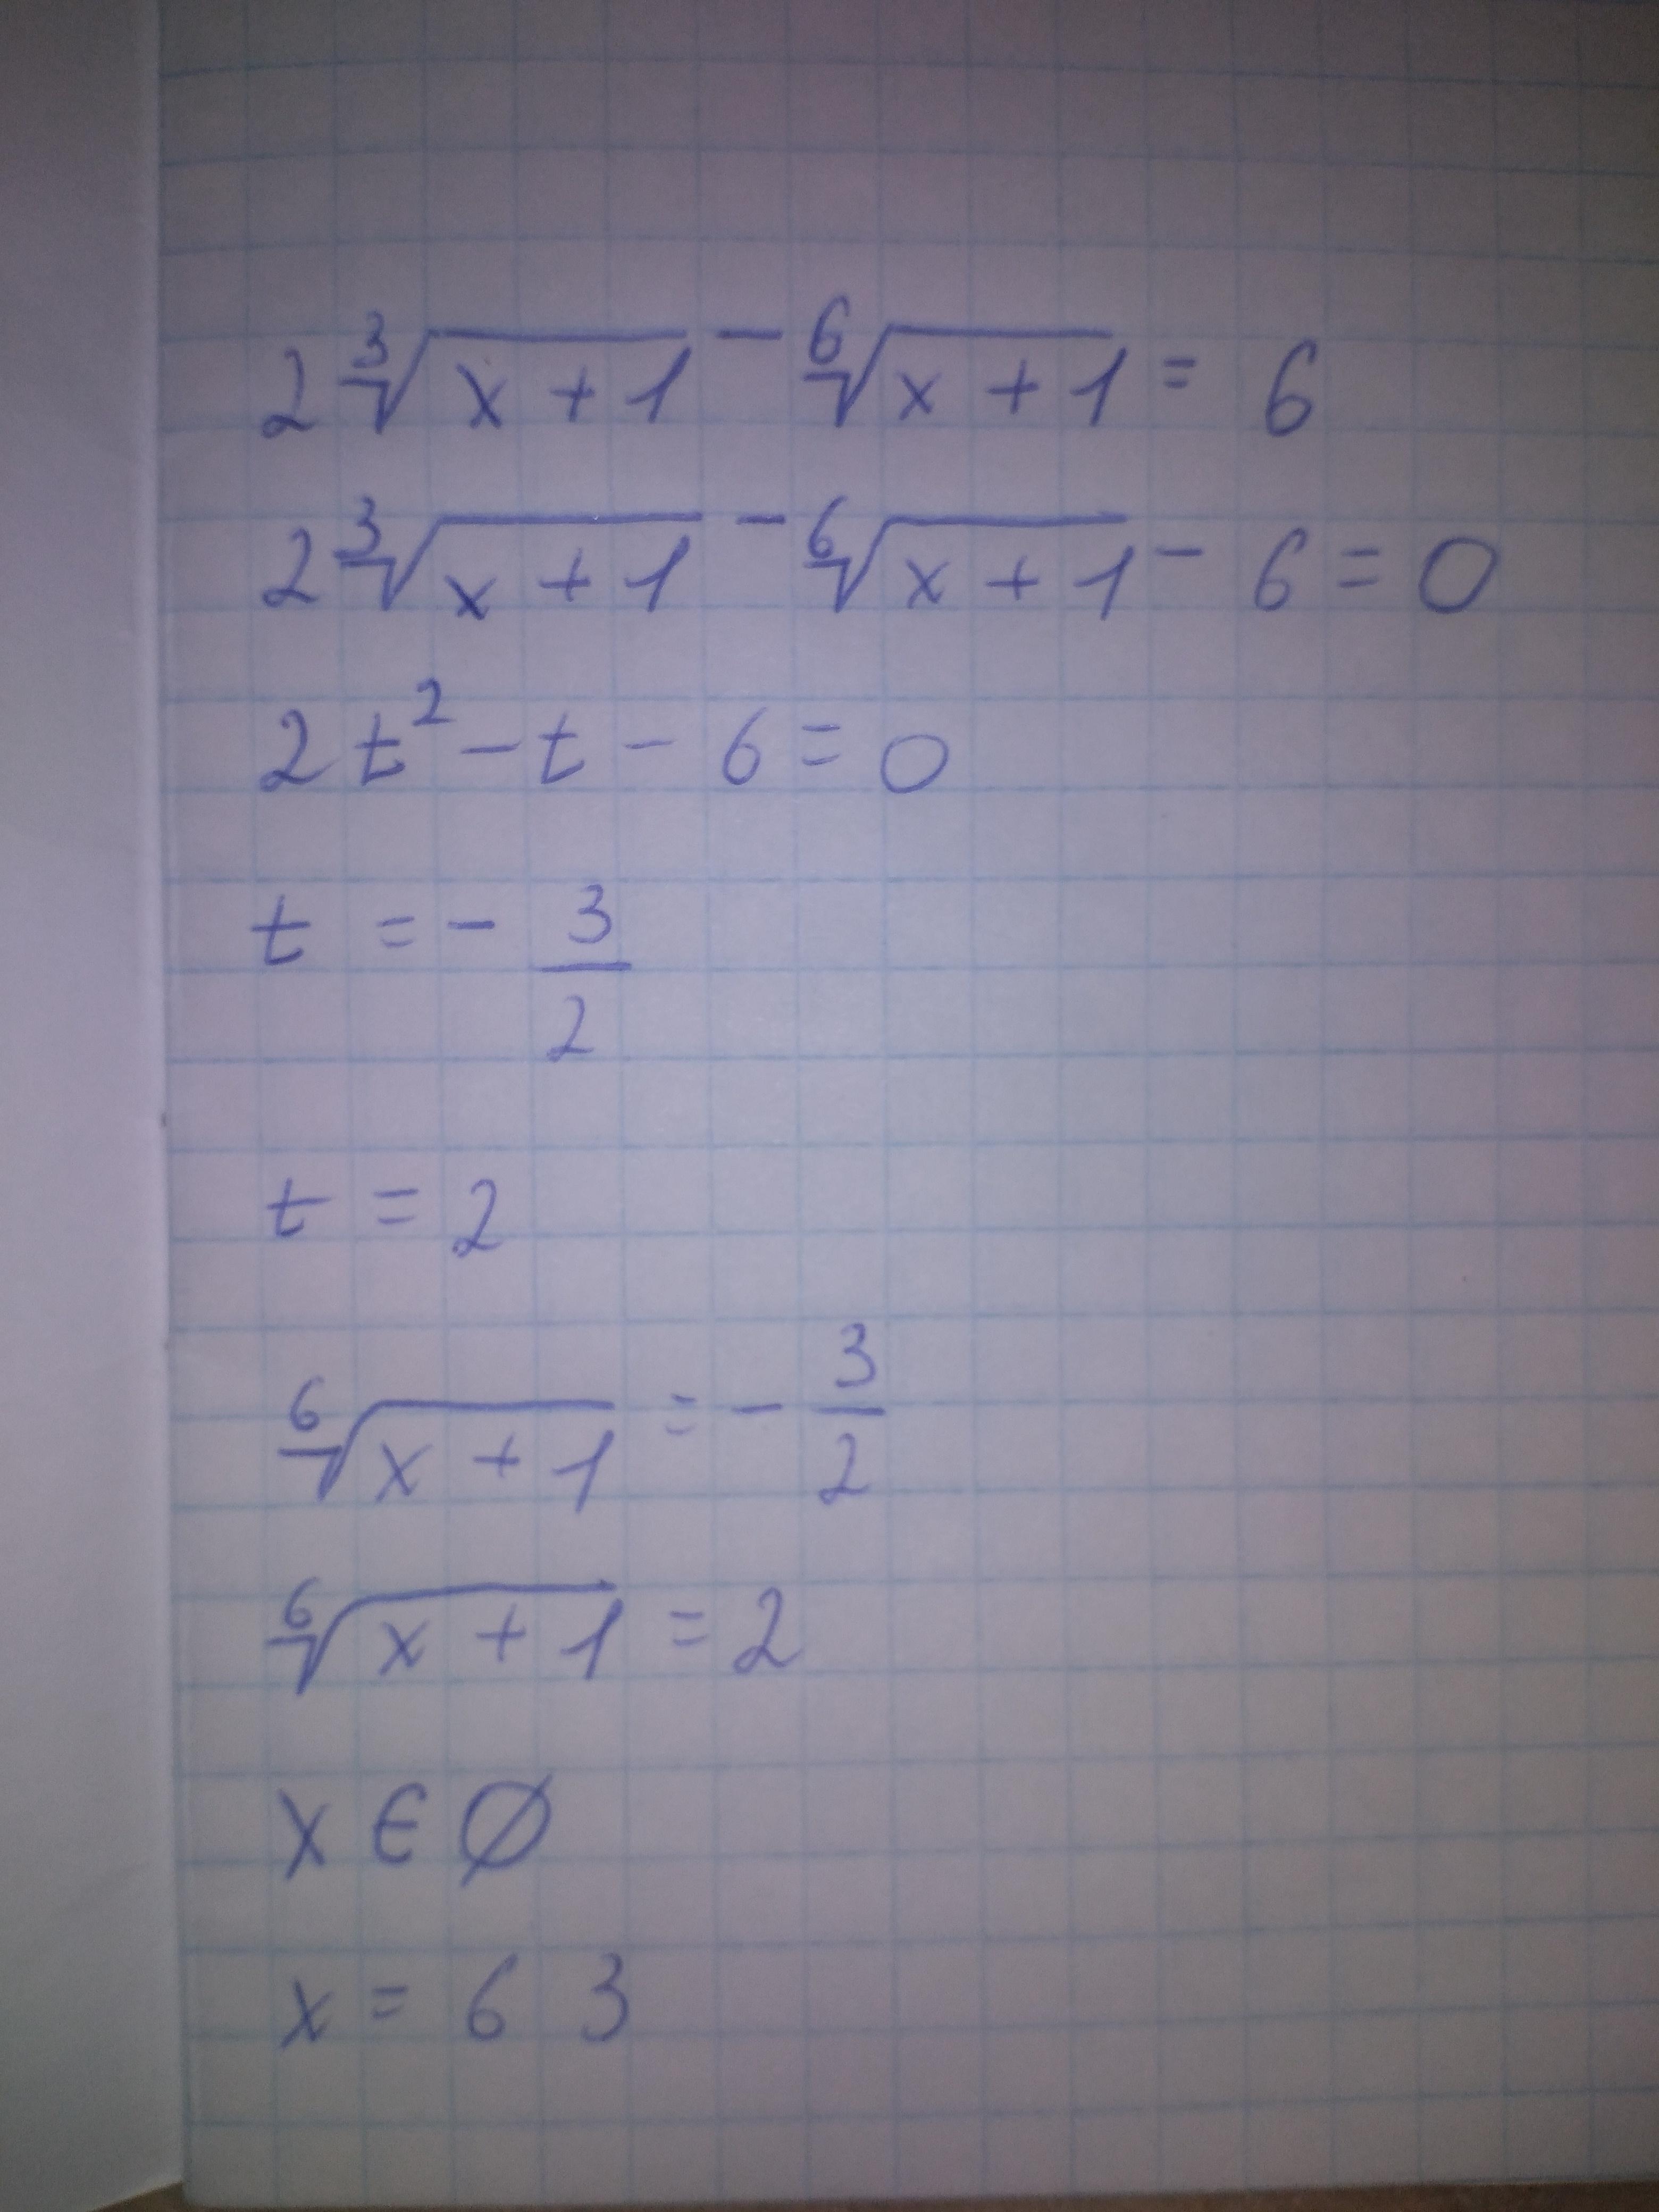 2∛x+1 − ⁶√x+1 = 6
2∛x+1 − ⁶√x+1 − 6 = 0
2t² − t − 6 = 0
t = − 3/2
t = 2
⁶√x+1 = − 3/2
⁶√x+1 = 2
x ∈ ∅
x = 63